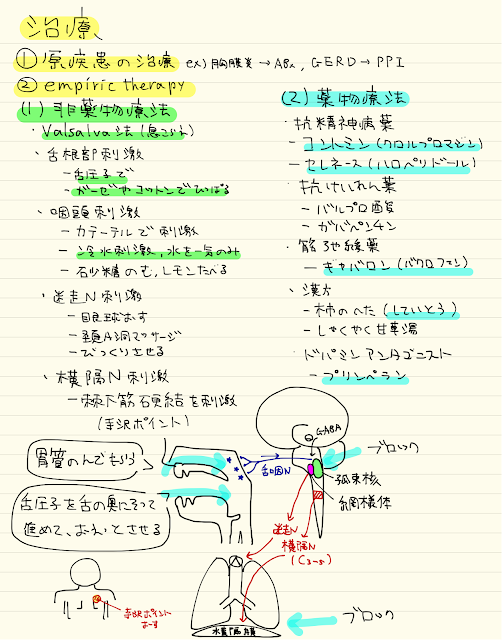 治療
① 原疾患の治療 ex) 胸膜炎→ABx, GERD→PPI
② empiric therapy
(1) 非薬物療法
・Valsalva法(息こらえ)
・舌根部刺激
- 舌圧子で
- ガーゼやコットンでひっぱる
・咽頭刺激
- カテーテルで刺激
- 冷水刺激, 水を一気のみ
- 砂糖のむ, レモンたべる
・迷走N刺激
- 眼球おす
- 頸A洞マッサージ
- びっくりさせる
・横隔N刺激
- 棘下筋硬結を刺激
(寺沢ポイント)
(2) 薬物療法
・抗精神病薬
- コントミン(クロルプロマジン)
- セレネース(ハロペリドール)
・抗けいれん薬
- バルプロ酸
- ガバペンチン
・筋弛緩薬
- ギャバロン(バクロフェン)
・漢方
- 柿のへた(していとう)
- しゃくやく甘草湯
・ドパミンアンタゴニスト
- プリンペラン
GABA
ブロック
孤束核
網様体
舌咽N
胃管のんでもらう
舌圧子を舌の奥にそって
進めて、おえっとさせる
迷走N
横隔N
(C3-5)
寺沢ポイント
おーす
横隔膜
ブロック